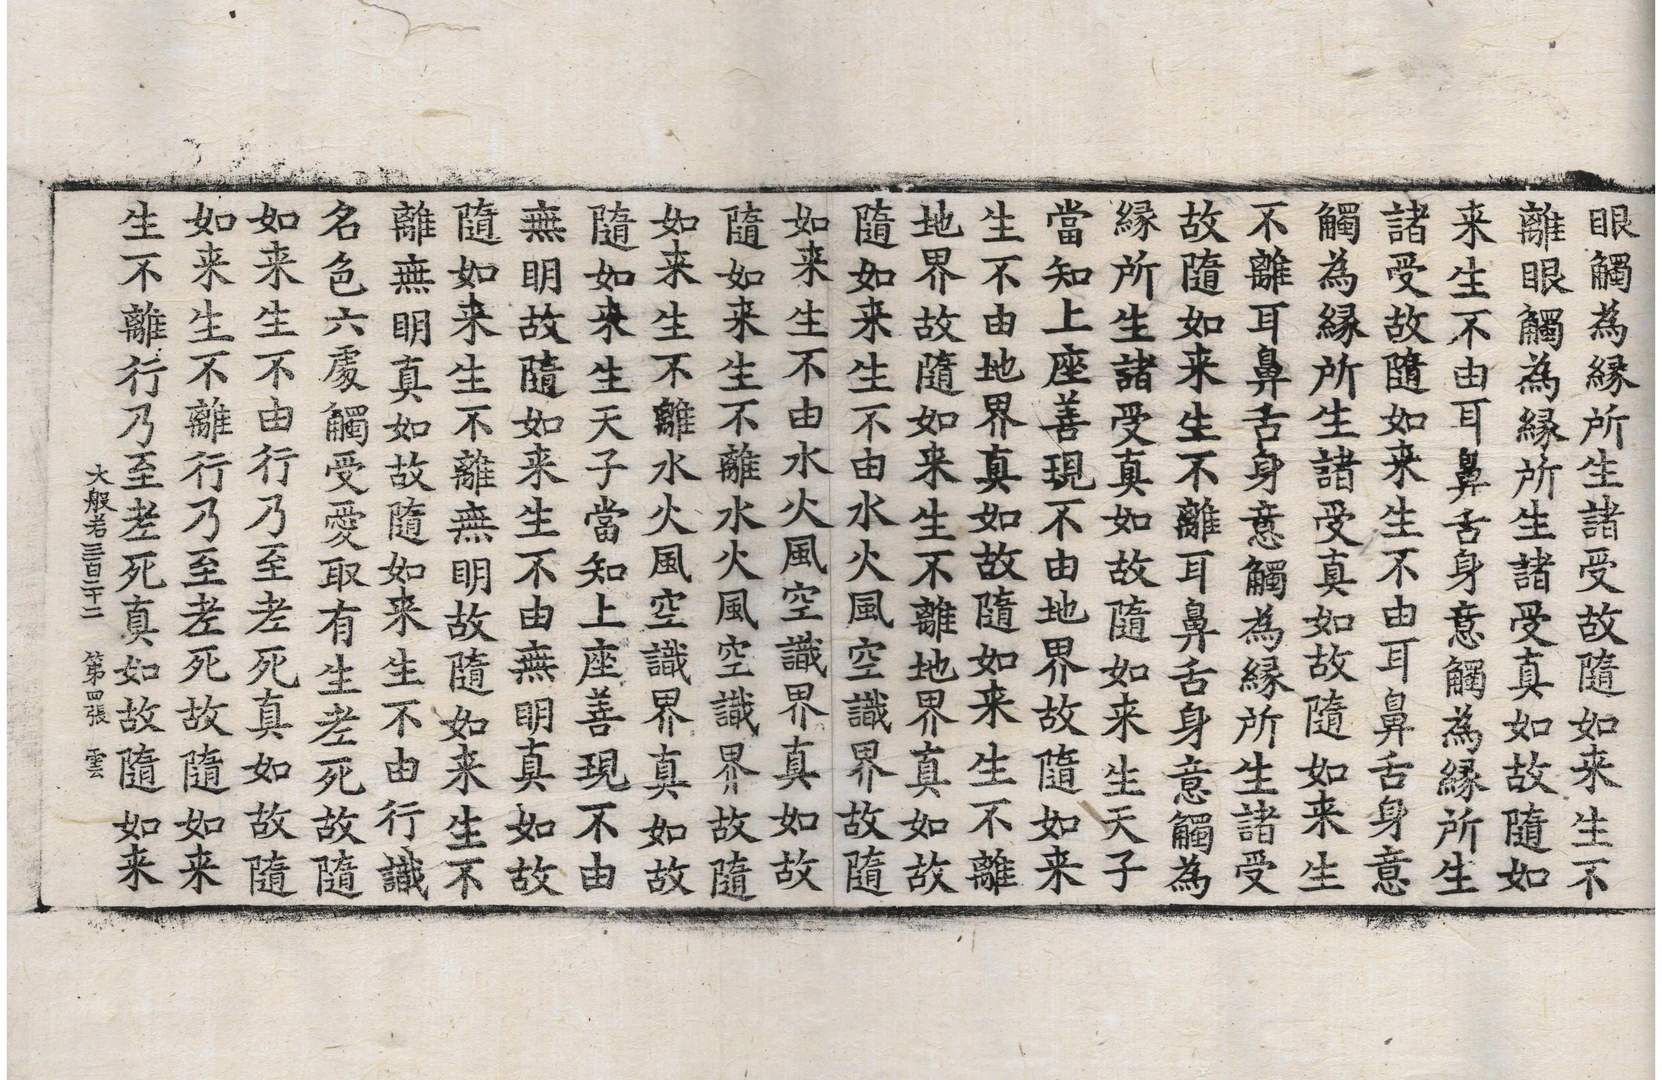 眼觸為縁所生諸受故隨如来生不
離眼觸為縁所生諸受真如故隨如
来生不由耳鼻舌身意觸為縁所生
諸受故隨如来生不由耳鼻舌身意
觸為縁所生諸受真如故隨如来生
不離耳鼻舌身意觸為縁所生諸受
故隨如来生不離耳鼻舌身意觸為
縁所生諸受真如故隨如来生天子
當知上座善現不由地界故隨如来
生不由地界真如故隨如来生不離
地界故隨如来生不離地界真如故
隨如来生不由水火風空識界故隨
如来生不由水火風空識界真如故
隨如来生不離水火風空識界故隨
如来生不離水火風空識界真如故
隨如来生天子當知上座善現不由
無明故隨如来生不由無明真如故
隨如来生不離無明故隨如来生不
離無明真如故隨如来生不由行識
名色六處觸受愛取有生老死故隨
如来生不由行乃至老死真如故隨
如来生不離行乃至老死故隨如来
生不離行乃至老死真如故隨如来
大般若三百二十二　第四張　雲